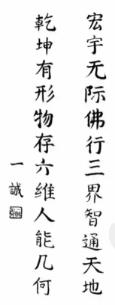 宏宇无际佛行三界智通天地
乾坤有形物存六维人能几何
一诚